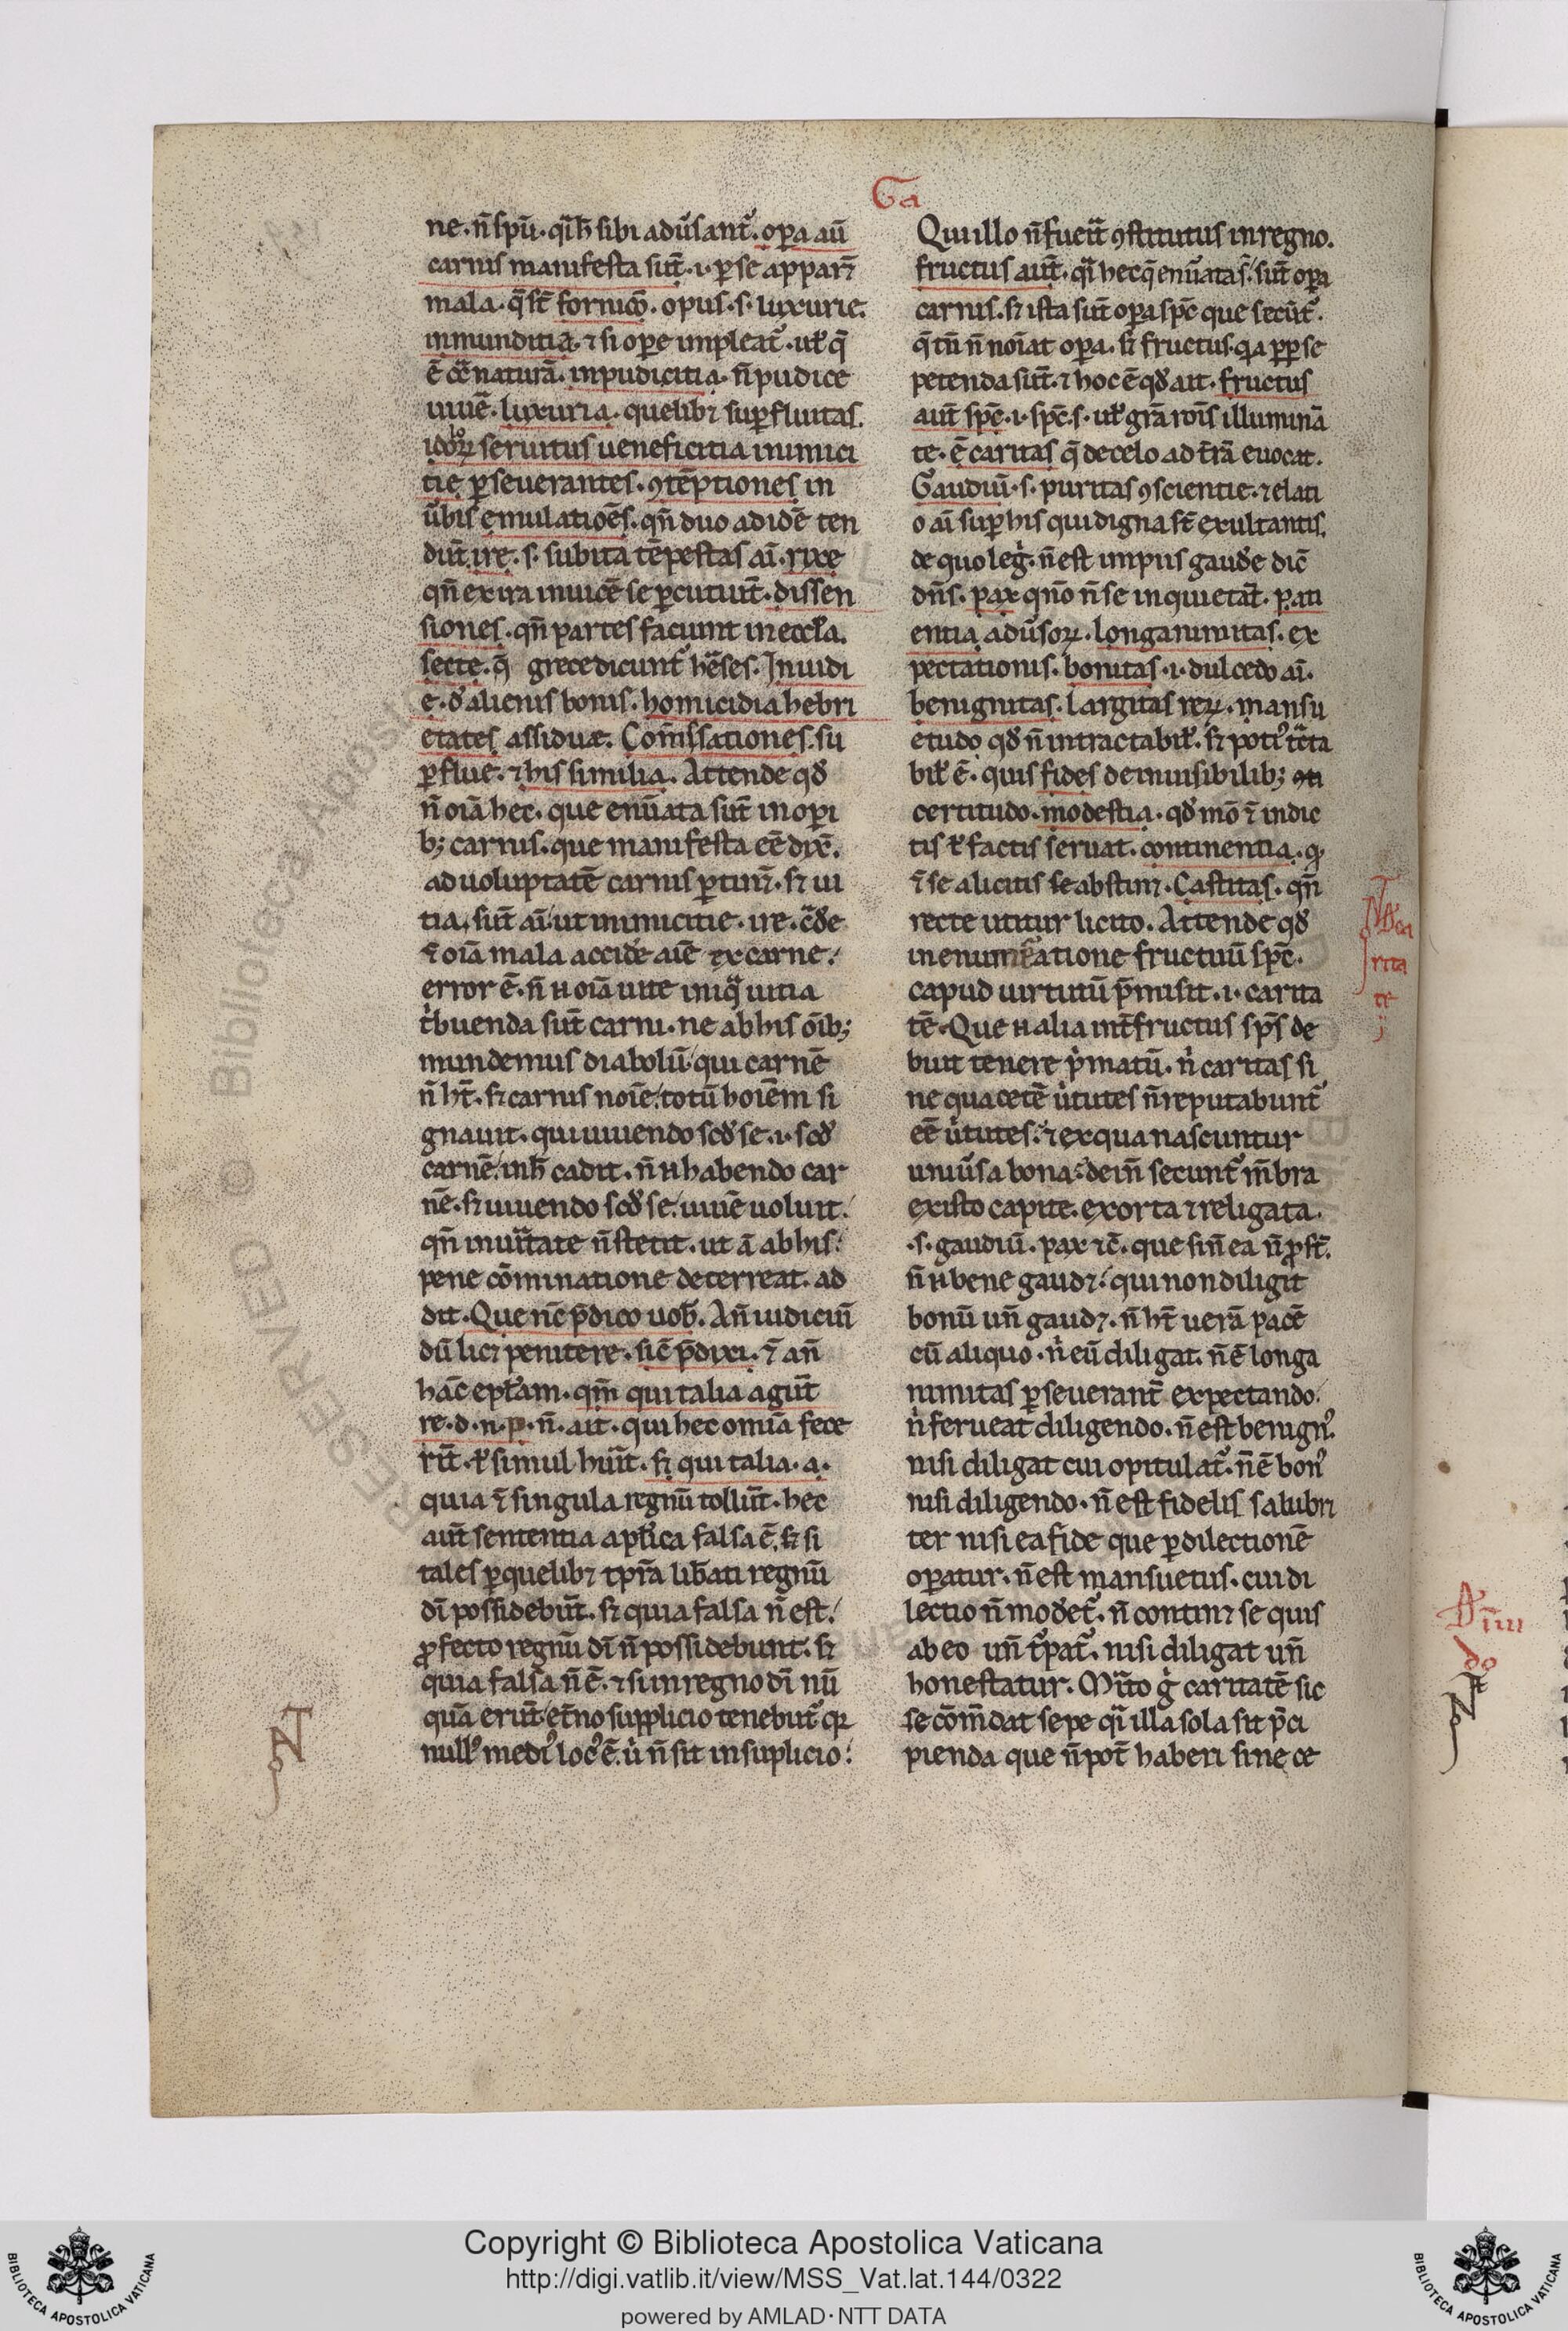 Ga
ne. n̄ spū. q̄ ih̄ sibi adūsant᷑. oꝑa aū
carnis manifesta sūt. i. ꝑ se apparēt
mala. q̄ st̄ fornicō. opus. s. luxurie.
inmunditia. ⁊ si opere impleat᷑. ut̄ q̄
ē cōt̄ naturā. inpudicitia. n̄ pudice
uiuē. luxuria. quelibꝫ suꝑfluitas.
idoloꝝ seruitus ueneficitia inimici
tie ꝑseuerantes. ꝯtēptiones in
ūbis emulatioēs. qn̄ duo ad idē ten
dūt. ire. s. subita tēpestas aī. rixe
qn̄ ex ira inuicē se ꝑcutiūt. dissen
siones. qn̄ partes faciunt in eccl̄a.
secte. q̄ grece dicunt᷑ hēses. Inuidi
e. d̄ alienis bonis. homicidia hebri
etates assiduæ. Com̄issationes. su
ꝑflue. ⁊ his similia. Attende qd̄
n̄ oīa hec. que enūata sūt in oꝑi
bꝫ carnis. que manifesta eē dix̄.
ad uoluptatē carnis ꝑtinēt. sꝫ ui
tia sūt aī ut inimicitie. ire. cēde
⁊ oīa mala accidē aīe ex carne.
error ē. n̄ n̄ oīa uite iniq̄ uitia
t̄buenda sūt carni. ne ab his oībꝫ
mundemus diabolū qui carnē
n̄ ht̄. sꝫ carnis noīe totū hoīem si
gnauit. qui uiuendo scd̄ se. i. scd̄
carnē inh̄ cadit. n̄ n̄ habendo car
nē. sꝫ uiuendo scd̄ se uiuē uoluit.
qn̄ in uītate n̄ stetit. ut ā ab his
pene cōminatione deterreat. ad
dit. Que nē p̄dico uob̄. An̄ iudiciū
dū licꝫ penitere. sic̄ p̄dixi. ⁊ an̄
hāc ept̄am. qm̄ qui talia agūt
re. d. n. p. n̄. ait. qui hec omīa fece
rīt. ł simul huīt. sꝫ qui talia. a.
quia ⁊ singula regnū tollūt. hec
aūt sententia apl̄ica falsa ē. sꝫ si
tales ꝑ quelibꝫ tp̄ra lib̄ati regnū
dī possidebūt. sꝫ quia falsa n̄ est.
ꝓfecto regnū dī n̄ possidebunt. sꝫ
quia falsa n̄ ē. ⁊ si in regno dī nū
quā erūt et̄no supplicio tenebūt᷑ qꝛ
null᷒ medi᷒ loc᷒ ē. ū n̄ sit in suplicio.
Qui illo n̄ fuerit ꝯstitutus in regno.
fructus aūt. q̄ī hec q̄ enūata sī sūt oꝑa
carnis. sꝫ ista sūt oꝑa spc̄ que secūt᷑.
q̄ tn̄ n̄ noīat oꝑa. sꝫ fructus. qa ꝓpt̄ se
petenda sūt. ⁊ hoc ē qd̄ ait. fructus
aūt spc̄. i. spc̄. s. ut̄ grā roīs illuminā
te. ē caritas q̄ de celo ad t̄rā euocat.
Gaudiū. s. puritas ꝯscientie. ⁊ elati
o aī suꝑ his qui digna st̄ exultantis.
de quo leg̅. n̄ est impiis gaud̄e dic̄
dn̄s. pax qn̄o n̄ se inquietāt. pati
entia adūsoꝝ. longanimitas. ex
pectationis. bonitas. i. dulcedo aī.
benignitas. largitas reꝝ. mansu
etudo qd̄ n̄ intractabil̄. sꝫ poti᷒ t̄cta
bil̄ ē. quis fides de inuisibilibꝫ
certitudo. modestia. qd̄ mō ⁊ in dic
tis ł factis seruat. continentia. q̄
⁊ se a licitis se abstinꝫ. Castitas. qn̄
recte utitur licito. Attende qd̄
in enumeratione fructuū spc̄.
capud uirtutū p̄misit. i. carita
tē. Que n̄ alia int̄ fructus sp̄s de
buit tenere p̄matū. n̄ caritas si
ne qua cetē ūtutes n̄ reputabunt᷑
eē ūtutes. ⁊ ex qua nascuntur
uniūsa bona. dein̄ secunt᷑ m̄bra
ex isto capite. exorta ⁊ religata.
.s. gaudiū. pax ⁊c̄. que sin̄ ea n̄ ꝓst̄.
n̄ n̄ bene gaudꝫ. qui non diligit
bonū un̄ gaudꝫ. n̄ ht̄ uerā pacē
cū aliquo. n̄ eū diligat. n̄ ē longa
nimitas ꝑseuerant̄ expectando.
n̄ ferueat diligendo. n̄ est benign᷒.
nisi diligat cui opitulat᷑. n̄ ē bon᷒
nisi diligendo. n̄ est fidelis salubri
ter nisi ea fide que ꝑ dilectionē
oꝑatur. n̄ est mansuetus. cui di
lectio n̄ modet᷑. n̄ continꝫ se quis
ab eo un̄ t᷑pat᷑. nisi diligat un̄
honestatur. Mīto g̅ caritatē sic
se cōm̄dat sepe q̄ī illa sola sit p̄ci
pienda que n̄ pot̄ haberi sine ce
Copyright © Biblioteca Apostolica Vaticana
http://digi.vatlib.it/view/MSS_Vat.lat.144/0322
powered by AMLAD · NTT DATA
BIBLIOTECA APOSTOLICA VATICANA
BIBLIOTECA APOSTOLICA VATICANA